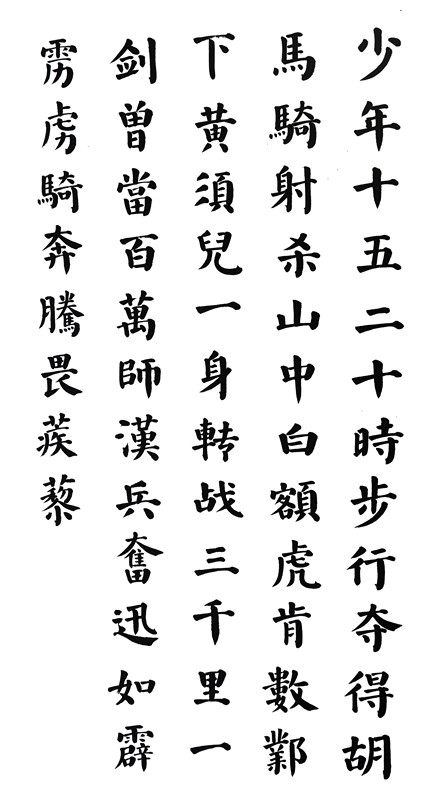 少年十五二十時步行夺得胡
馬騎射杀山中白額虎肯數鄴
下黃須兒一身轉战三千里一
剑曾當百萬師漢兵奮迅如霹
雳虏騎奔騰畏蒺藜